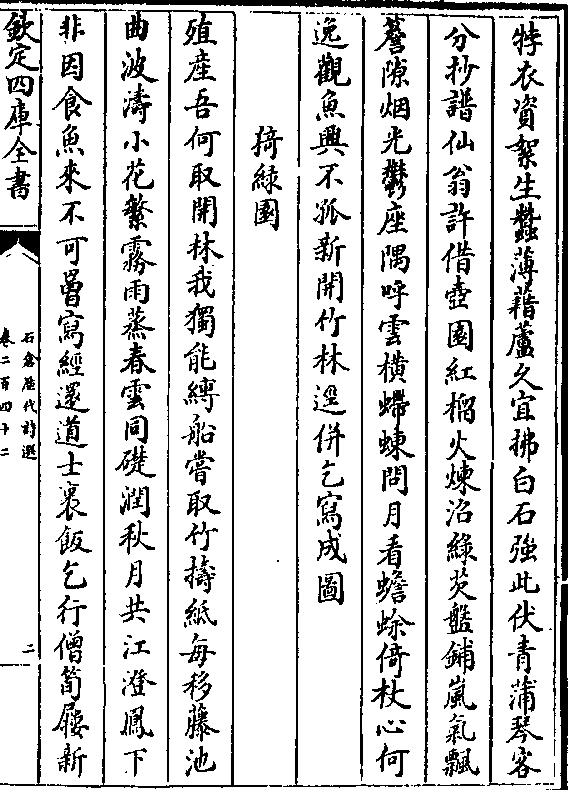 㹀衣資絮生蠶薄藉蘆久宜拂白石強此伏青蒲琴客
分抄譜仙翁許借壺園紅榴火煉沼綠芡盤鋪嵐氣飄
簷隙烟光鬱座隅呼雲橫螮蝀問月看蟾蜍倚杖心何
逸觀魚興不孤新開竹林逕併乞寫成圖
猗綠園
殖産吾何取開林我獨能縛船嘗取竹擣紙每移藤池
曲波濤小花繁霧雨蒸春雲同礎潤秋月共江澄鳳下
非因食魚來不可罾寫經還道士裹飯乞行僧筍屨新
欽定四庫全書
石倉歷代詩選
卷二百四十二
二